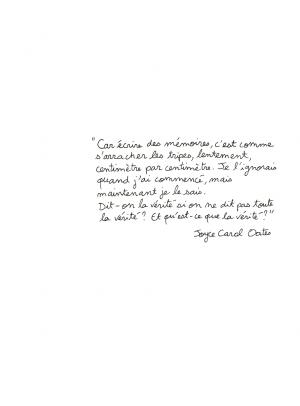 "Car écrire des mémoires, c'est comme
s'arracher les tripes, lentement,
centimètre par centimètre. Je l'ignorais
quand j'ai commencé, mais
maintenant je le sais.
Dit-on la vérité si on ne dit pas toute
la vérité ? Et qu'est-ce que la vérité ?"
Joyce Carol Oates